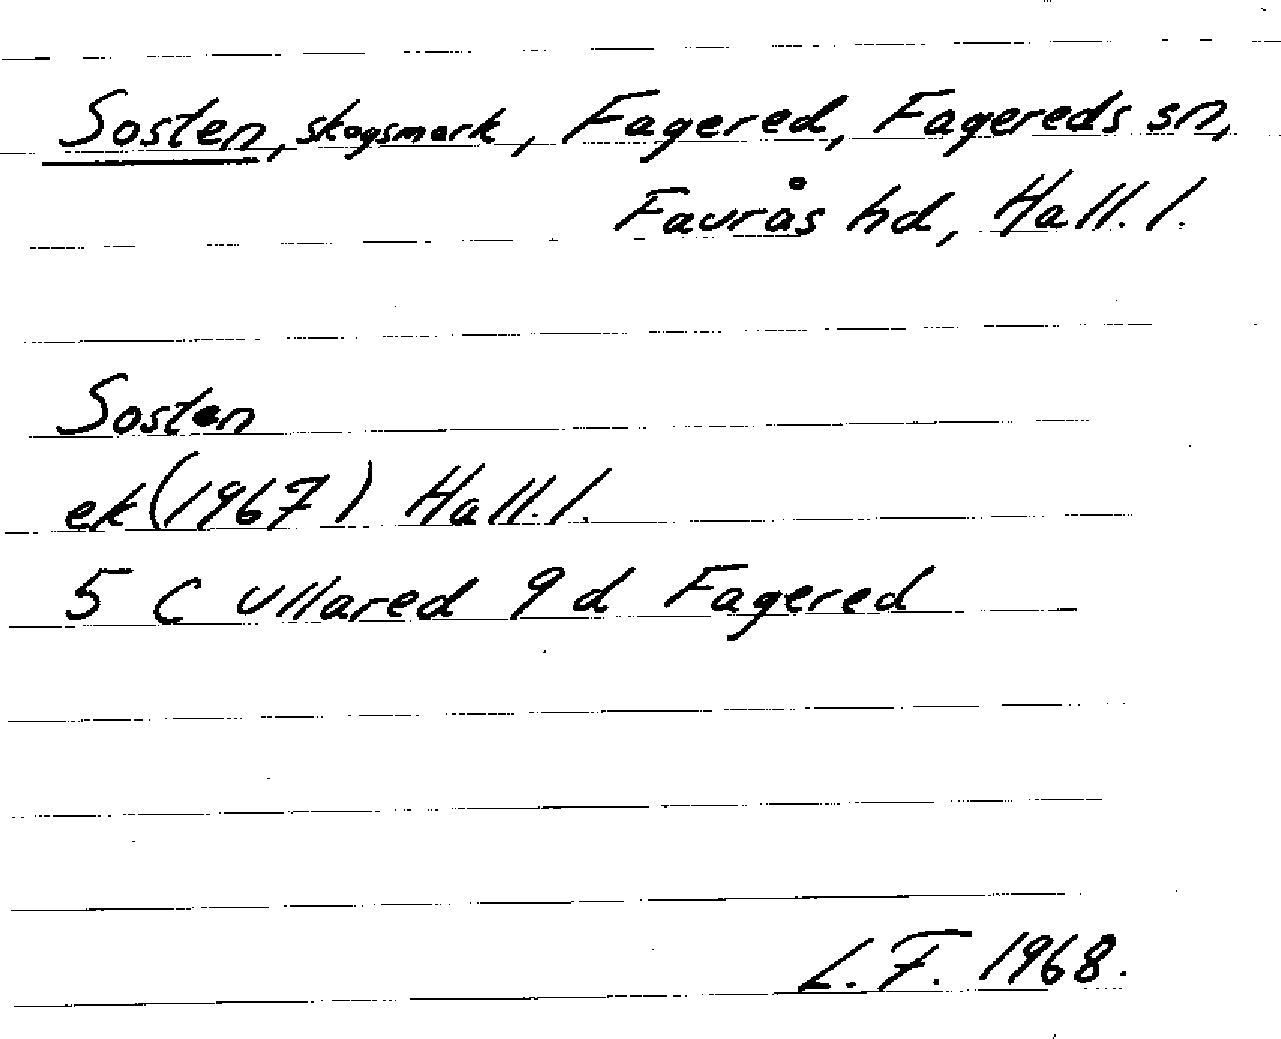 Sosten, skogsmark, Fagered, Fagereds sn,
Faurås hd, Hall. l.
Sosten
ek (1967) Hall. l.
5 C Ullared 9 d Fagered
L. F. 1968.